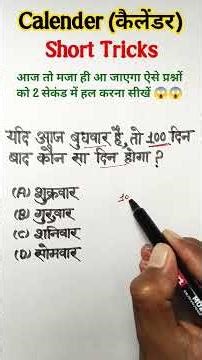 Calender (कैलेंडर)
Short Tricks
आज तो मजा ही आ जाएगा ऐसे प्रश्नों
को 2 सेकंड में हल करना सीखें 😱😱
यदि आज बुधवार है, तो 100 दिन
बाद कौन सा दिन होगा ?
(A) शुक्रवार
10
(B) गुरुवार
(C) शनिवार
(D) सोमवार